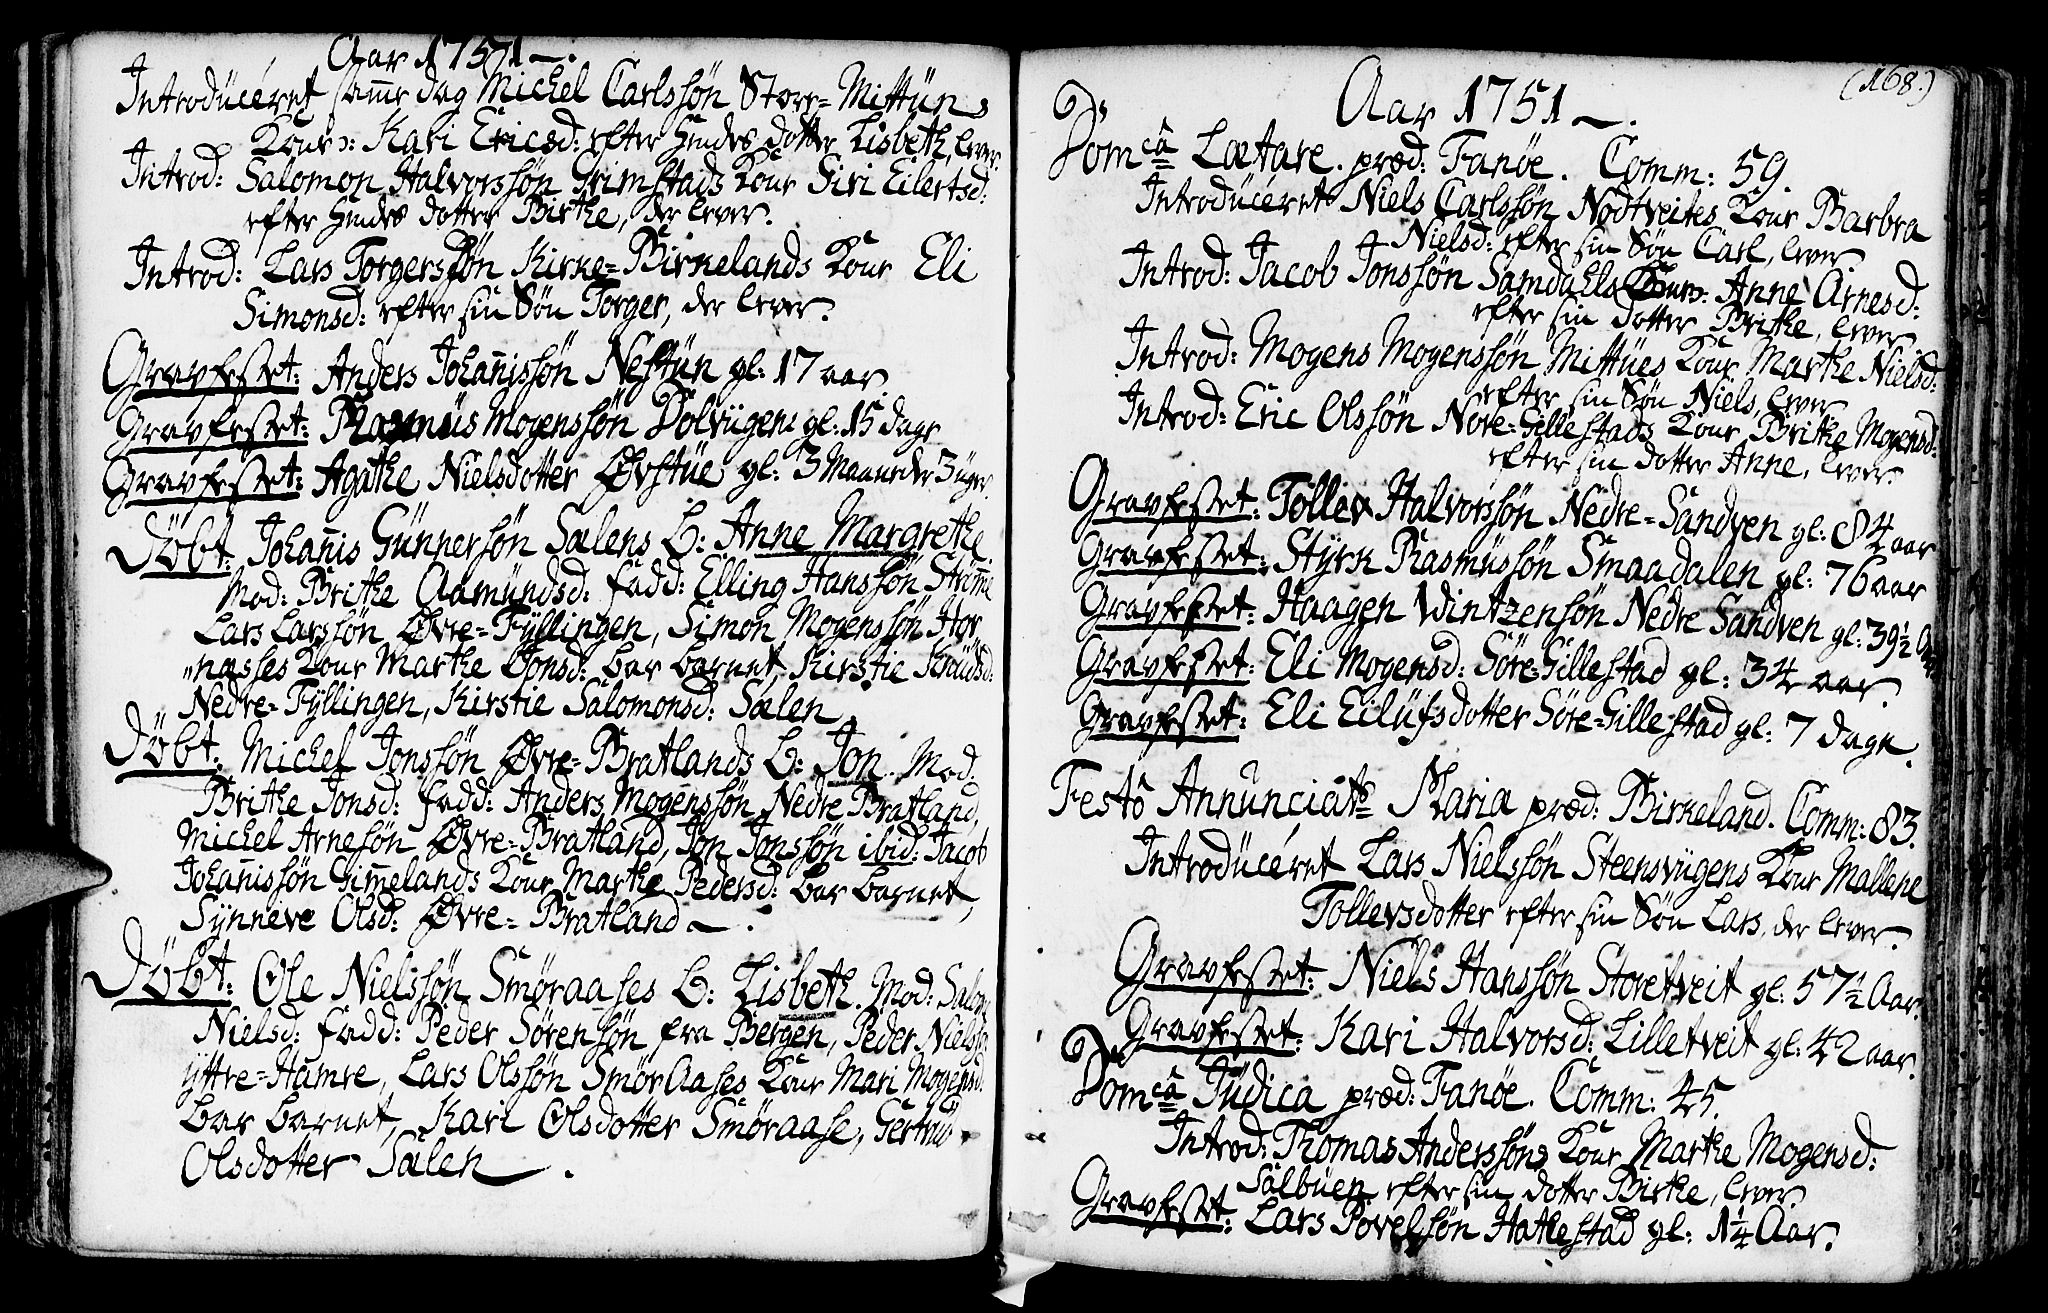 Aar 1751 —.
Introdúceret samme dag Michel Carlssøn Store-Mittúns
Kone: Kari Ericsd: efter hendes dotter Lisbeth, lever
Introd: Salomon Halvorssøn Grimstads Kone Siri Eilertsd:
efter hendes dotter Birthe, der lever.
Introd: Lars Torgerssøn Kirke-Birkelands Kone Eli
Simonsd: efter sin Søn Torger, der lever.
Gravfestet: Anders Johanissøn Nestún gl: 17 aar
Gravfestet: Rasmús Mogenssøn Dolvúgen gl: 15 dage
Gravfestet: Agathe Nielsdotter Øvstúe gl: 3 Maaneder 3 úger.
Døbt: Johanis Gúnnersøn Sælens b: Anne Margrethe
Mod: Brithe Aamúndsd: fadd: Elling Hanssøn
Lars Larssøn Øvre-Fÿllingen, Simon Mogenssøn Hor
næsses Kone Marthe Jonsd: bar barnet, Kirstie Knúdsd:
Nedre-Fÿllingen, Kirstie Salomonsd: Sælen
Døbt: Michel Jonssøn Øvre-Bratlands b: Jon. Mod.
Brithe Jonsd: fadd: Anders Mogenssøn Nedre Bratland,
Michel Arnesøn Øvre-Bratland, Jon Jonssøn ibid: Jacob
Johanissøn Gimelands Kone Marthe Pedersd: bar barnet,
Sÿnneve Olsd: Øvre-Bratland —.
Døbt: Ole Nielssøn Smøraases b: Lisbeth. Mod:
Nielsd: fadd: Peder Sørensøn fra Bergen, Peder Nielss
ÿttre-Hamre, Lars Olssøn Smøraases Kone Mari Mogensd:
bar barnet, Kari Olsdotter Smøraase, Gertrúd
Olsdotter Sælen —.
(168.)
Aar 1751 —.
Domca Lætare. præd: Fanøe. Comm: 59.
Introdúceret Niels Carlssøn Nødtveites Kone Barbra
Nielsd: efter sin Søn Carl, lever.
Introd: Jacob Jonssøn Samdahls Kone: Anne Arnesd:
efter sin dotter Brithe, lever.
Introd: Mogens Mogenssøn Mittúes Kone Marthe Nielsd:
efter sin Søn Niels, lever
Introd: Eric Olssøn Nore-Gillestads Kone Brithe Mogensd:
efter sin dotter Anne, lever
Gravfestet: Tollev Halvorssøn Nedre-Sandven gl: 84 aar
Gravfestet: Stÿrk Rasmússøn Smaadalen gl: 76 aar
Gravfestet: Haagen Wintzensøn Nedre Sandven gl: 39½ Aar
Gravfestet: Eli Mogensd: Søre-Gillestad gl: 34 aar
Gravfestet: Eli Eilúfsdotter Søre-Gillestad gl: 7 dage.
Festo Annúnciat: Mariæ præd: Birkeland. Comm: 83.
Introdúceret Lars Nielssøn Steensvúgens Kone Mallene
Tollevsdotter efter sin Søn Lars, der lever.
Gravfestet: Niels Hanssøn Storetveit gl: 57½ Aar.
Gravfestet: Kari Halvorsd: Lilletveit gl: 42 aar.
Domca Júdica præd: Fanøe. Comm: 45.
Introd: Thomas Anderssøns Kone Marthe Mogensd:
Salbúen efter sin dotter Birthe, lever
Gravfestet: Lars Povelsøn Hathestad gl: 1¼ Aar.